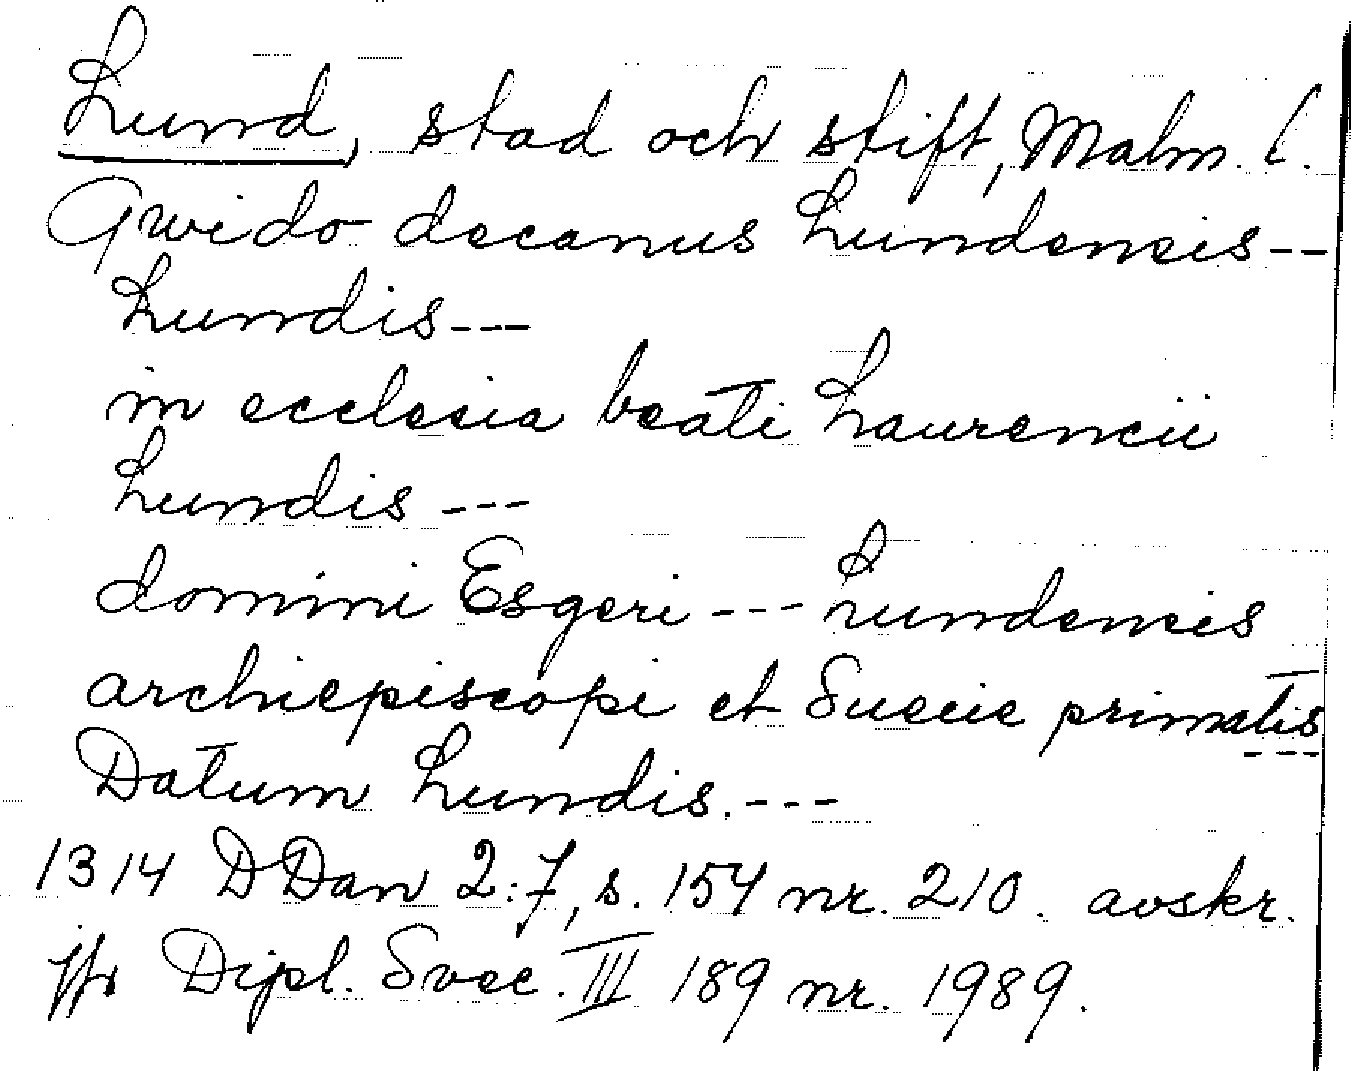 Lund, stad och stift, Malm. l.
Gwido decanus Lundensis--
Lundis---
in ecclesia beati Laurencii
Lundis---
domini Esgeri --- Lundensis
archiepiscopi et Suecie primatis
---
Datum Lundis.---
1314 DDan 2:7, s. 154 nr. 210. avskr.
jfr Dipl. Svec. III 189 nr. 1989.